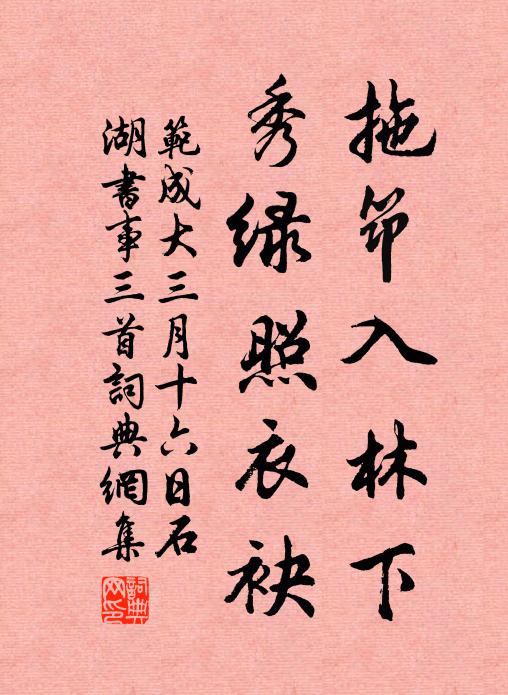 拖筇入林下
秀緑照衣袂
範成大三月十六日石
湖書事三首詞典網集
詞典
網印